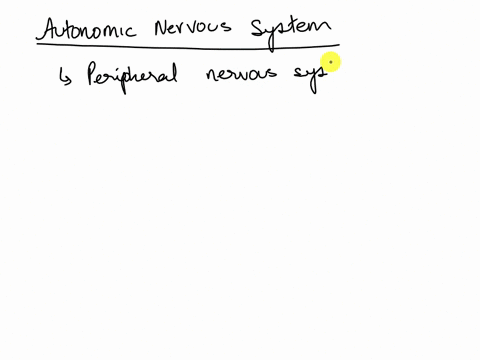 Autonomic Nervous System
↳ Peripheral nervous sys